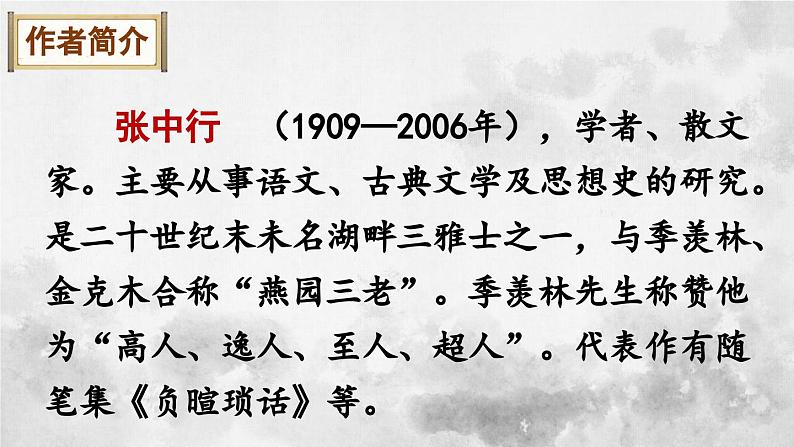 作者简介
张中行 （1909—2006年），学者、散文
家。主要从事语文、古典文学及思想史的研究。
是二十世纪末未名湖畔三雅士之一，与季羡林、
金克木合称“燕园三老”。季羡林先生称赞他
为“高人、逸人、至人、超人”。代表作有随
笔集《负暄琐话》等。